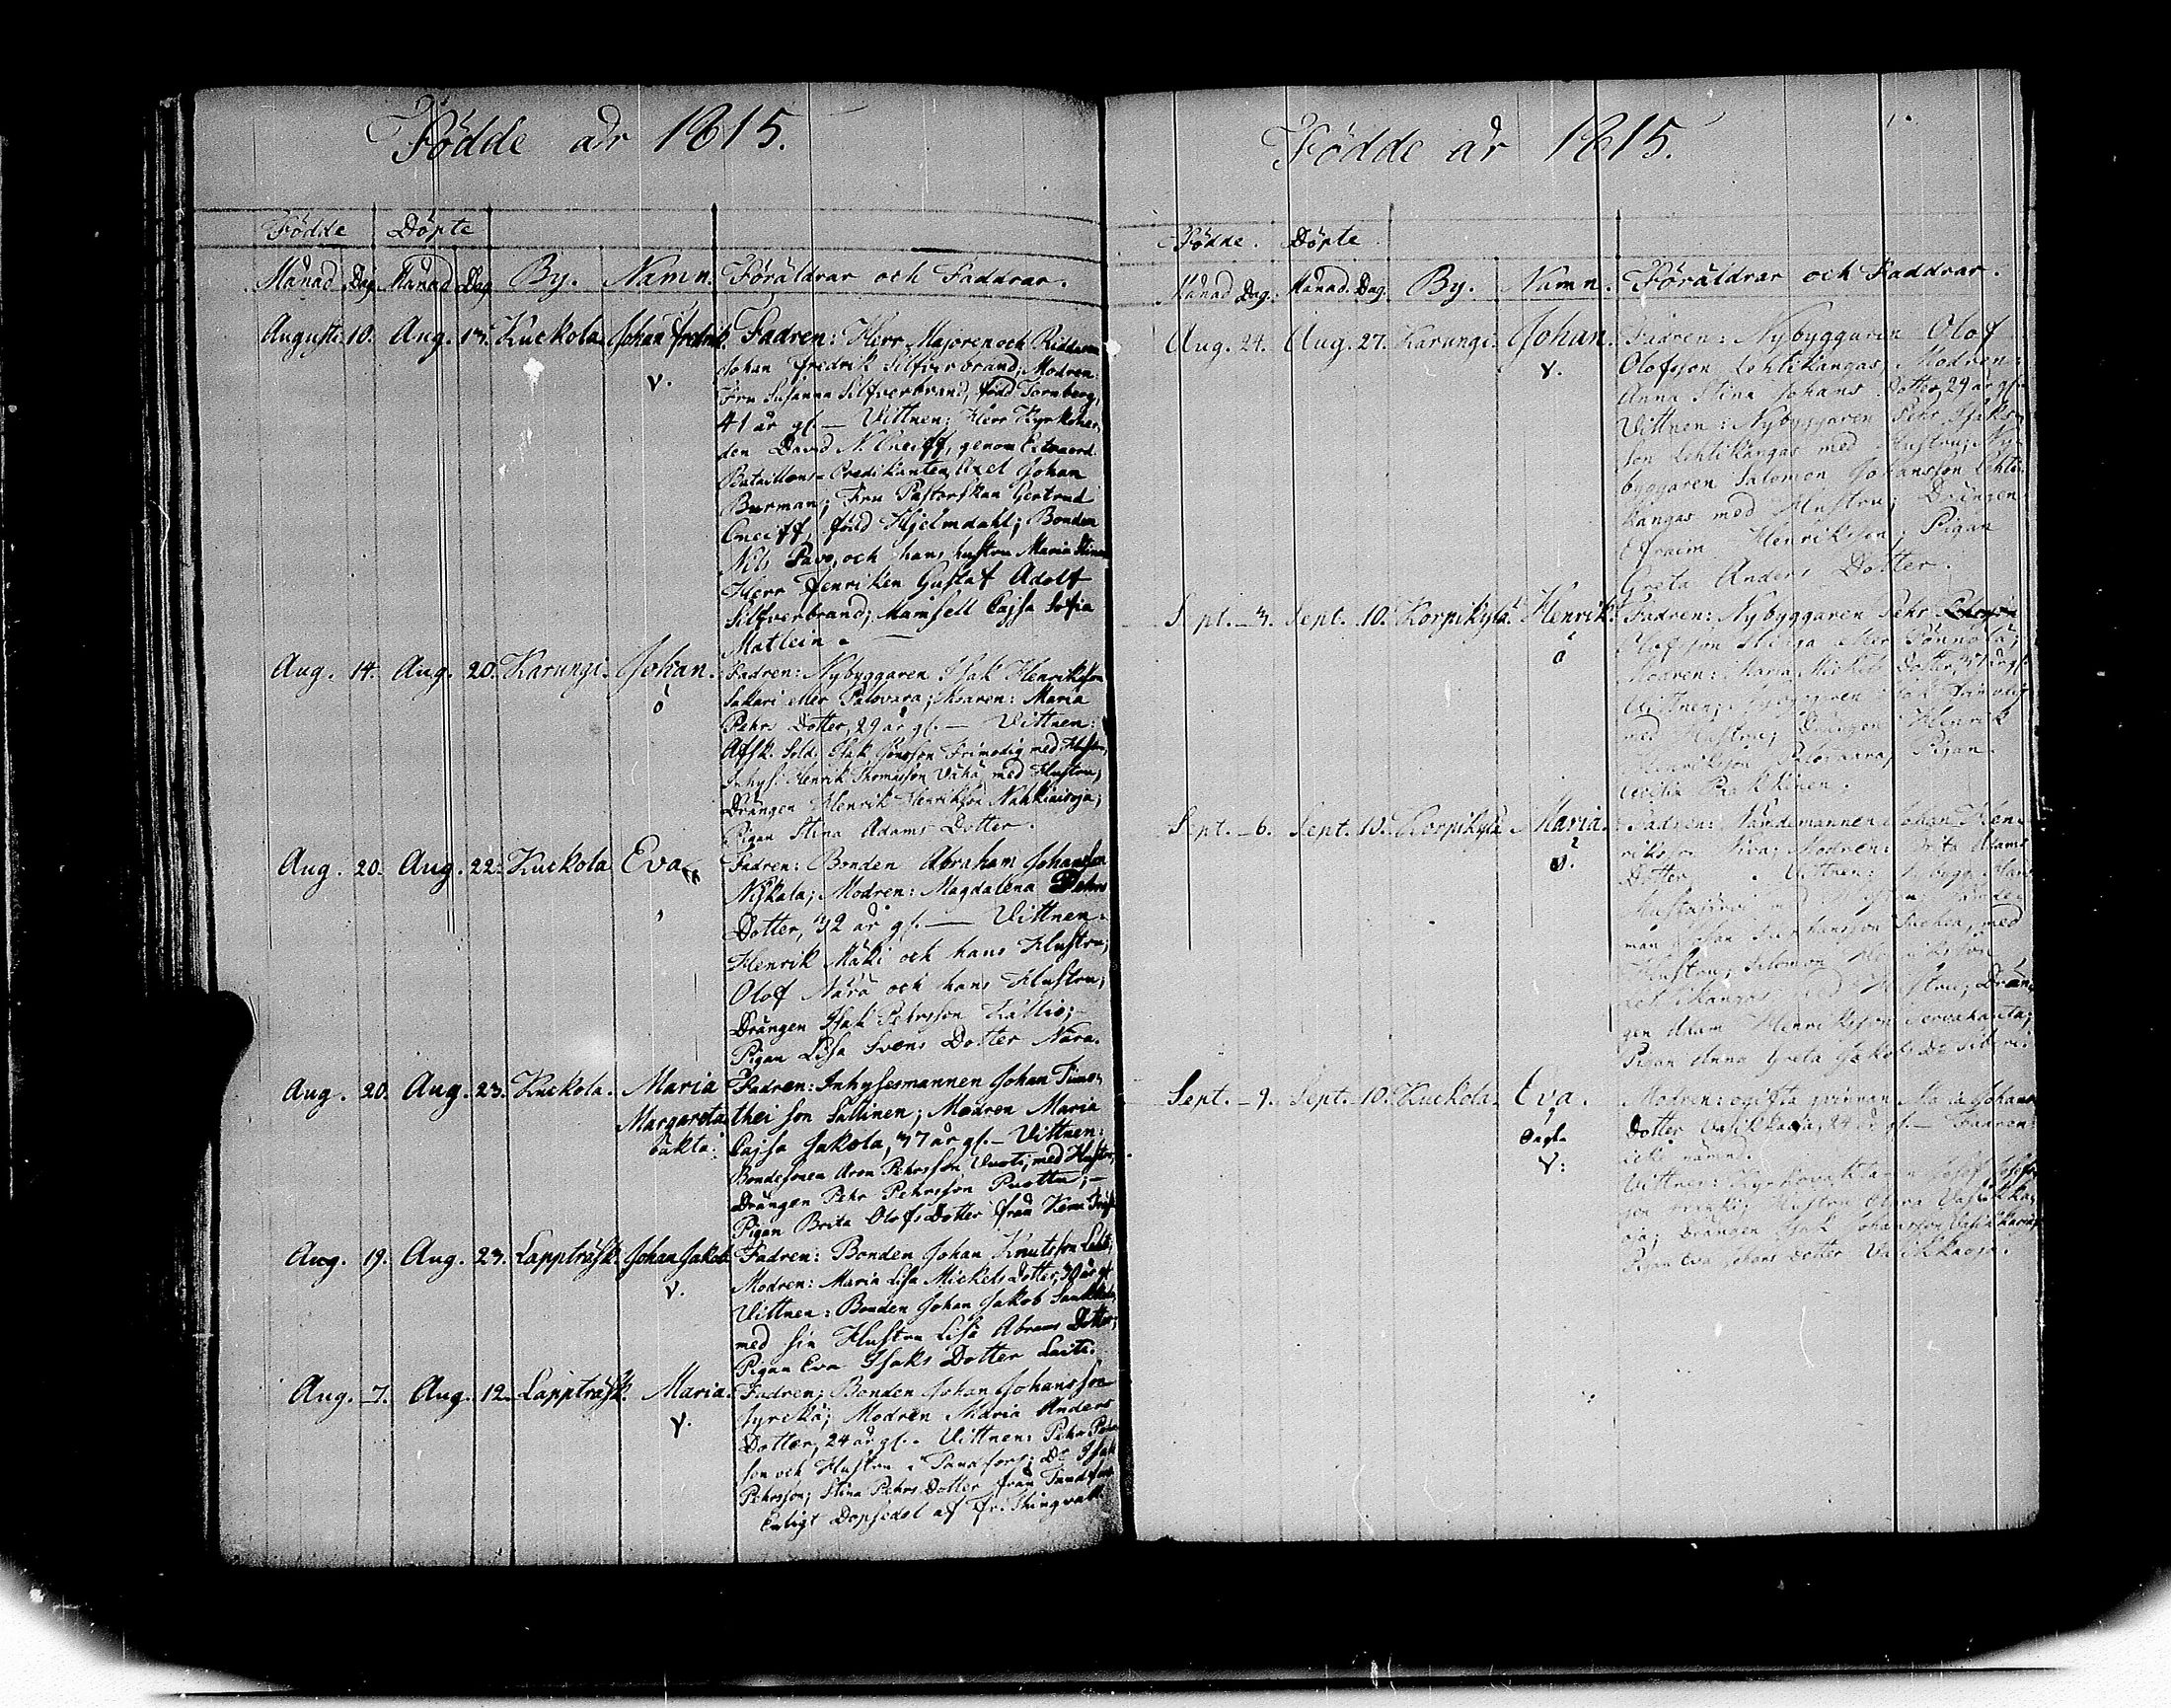 Födde år 1815.
Födde Döpte
Månad Dag Månad Dag By. Namn. Föräldrar och Faddrar.
Augusti 10. Aug. 13. Kuckola Johan Fredrik. Fadren: Herr Majoren och Riddaren
Johan Fredrik Silfverbrand; Modren:
v. Fru Susanna Silfverbrand, född Tornberg,
41 år gl. — Vittnen: Herr Kyrkoher-
den David N. Cneiff, genom Extraord.
Bataillons-Predikanten Axel Johan
Burman; Fru Pastorskan Gertrud
Cneiff, född Hjelmdahl; Bonden
Nils Pavo, och hans hustru Maria Stina
Herr Fenriken Gustaf Adolf
Silfverbrand; Mamsell Cajsa Sofia
Matlein.
Aug. 14. Aug. 20. Karungi. Johan. Fadren: Nybyggaren Isak Henriksson
ó Sakari eller Palovara; Modren: Maria
Pehrs Dotter, 29 år gl. — Vittnen:
Afsk. Sold. Isak Jönsson Frimodig med Hustru,
Inhys. Henrik Thomasson Vähä med Hustru;
Drängen Henrik Henriksson Nahkiaisoja;
Pigan Stina Adams Dotter.
Aug. 20. Aug. 22. Kuckola Eva Fadren: Bonden Abraham Johansson
Niskala; Modren: Magdalena Pehrs
Dotter, 32 år gl. — Vittnen:
Henrik Mäki och hans Hustru;
Olof Närä och hans Hustru;
Drängen Isak Pehrsson Kallio;
Pigan Lisa Svens Dotter Nära.
Aug. 20. Aug. 23. Kuckola. Maria Fadren: Inhysesmannen Johan Timo-
Margareta thei son Sallinen; Modren Maria
oäkta: Cajsa Jakola, 37 år gl. — Vittnen:
Bondesonen Aron Pehrsson Vuoti, med Hustru,
Drängen Pehr Pehrsson Ruottu; —
Pigan Brita Olofs Dotter från Kemi
Aug. 19. Aug. 23. Lappträsk. Johan Jakob Fadren: Bonden Johan Knutsson
v. Modren: Maria Lisa Mickels Dotter, 30 år gl
Vittnen: Bonden Johan Jakob
med sin Hustru Lisa Abrams Dotter;
Pigan Eva Isaks Dotter Laiti.
Aug. 7. Aug. 12. Lappträsk. Maria. Fadren; Bonden Johan Johansson
v. Jyrckä; Modren Maria Anders
Dotter, 24 år gl. Vittnen: Pehr
son och Hustru i Tanafors; Do Isak
Pehrsson; Stina Pehrs Dotter från
Enligt Dopsedel af Fr.
Födde år 1815.
Födde. Döpte.
Månad Dag. Månad. Dag. By. Namn. Föräldrar och Faddrar.
Aug. 24. Aug. 27. Karungi. Johan. Fadren: Nybyggaren Olof
v. Olofsson Lehtikangas; Modren:
Anna Stina Johans Dotter, 29 år gl.
Vittnen: Nybyggaren Pehr Isaks-
son Lehtikangas med Hustru; Ny-
byggaren Salomon Johansson Lehti-
kangas med Hustru; Drängen
Efraim Henriksson; Pigan
Greta Anders Dotter.
Sept. 3. Sept. 10. Korpikylä. Henrik. Fadren: Nybyggaren Pehr
ó Olofsson eller
Modren: Maria Mickels Dotter, 31 år gl.
Vittnen: Nybyggaren Isak Frimodig
med Hustru; Drängen Henrik
Henriksson Palovaara; Pigan
Cecilia Pukkinen.
Sept. 6. Sept. 10. Korpikylä Maria. Fadren: Nämdemannen Johan Hen-
v. riksson Modren: Brita Adams
Dotter Vittnen: Nybygg. Hans
Mustajärvi med Hustru; Nämde-
man Johan med
Hustru; Salomon
Lehtikangas med Hustru; Drän-
gen Adam Henriksson
Pigan Anna Greta Jakobs Do
Sept. 9. Sept. 10. Kuckola. Eva. Modren: ogifta qvinnan Maria Johans
oägta Dotter 24 år gl. — Fadren
v: icke nämnd.
Vittnen: Kyrkovaktaren Josef
son Hustru Clara
Drängen Isak Johansson
Pigan Eva Johans Dotter